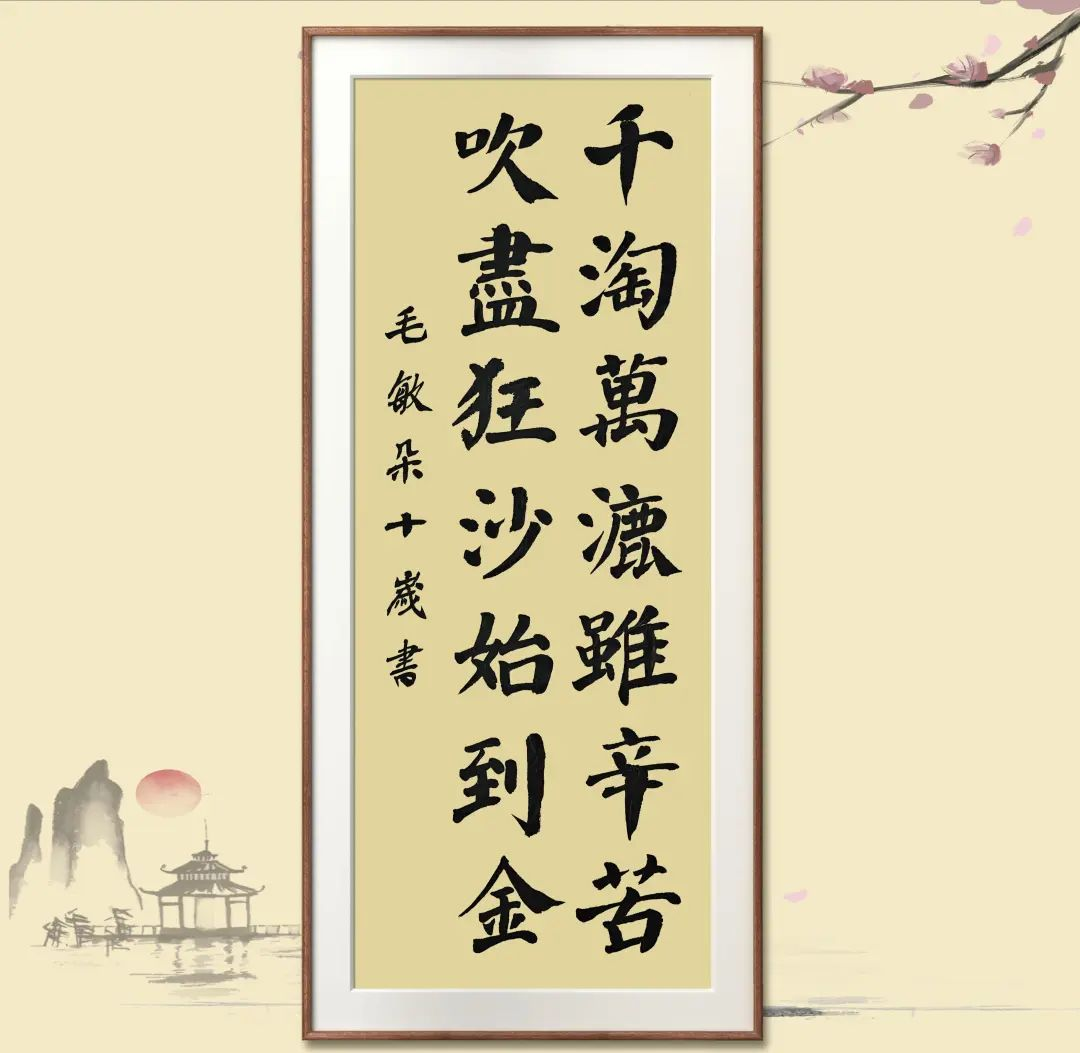 千淘萬漉雖辛苦
吹盡狂沙始到金
毛敏朵十歲書